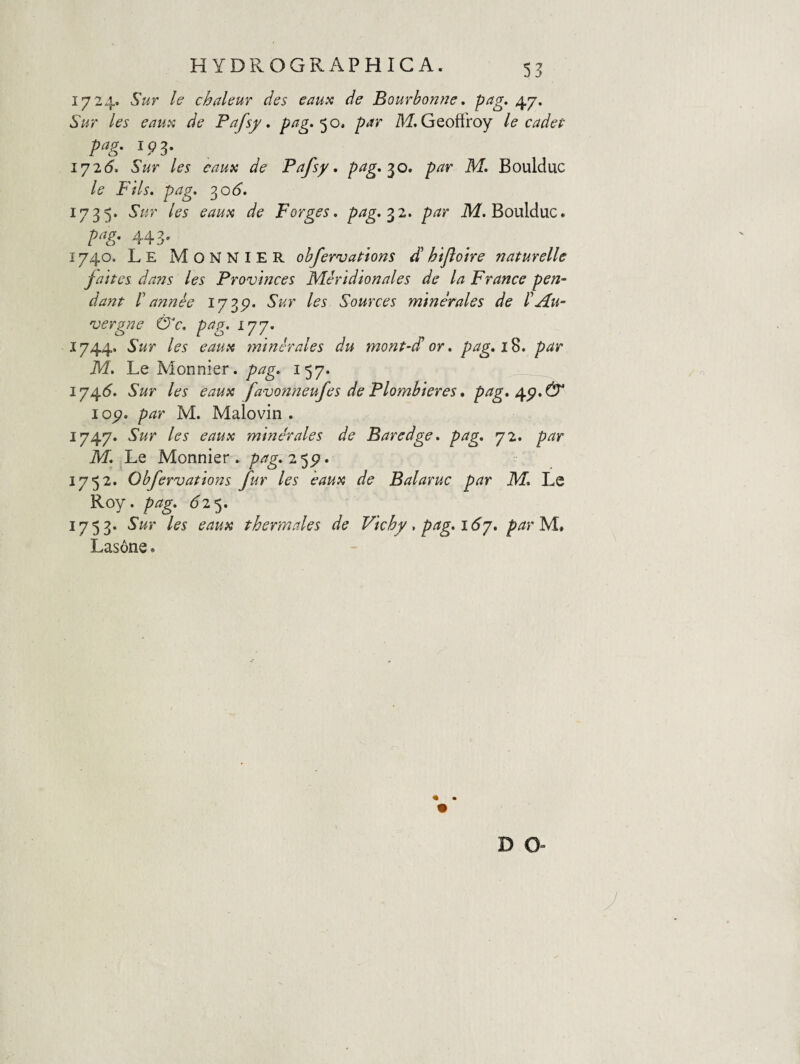 HYDROGRAPHICA. 53
1724. Sur le chaleur des eaux de Bourbonne. pag. 47.
Sur les eaux de Paſsy. pag. 50. par M. Geoffroy le cadet
pag. 193.
1726. Sur les eaux de Paſsy. pag. 30. par M. Boulduc
le Fils. pag. 306.
1735. Sur les eaux de Forges. pag. 32. par M. Boulduc.
pag. 443.
1740. LE MONNIER obſervations d'hiſtoire naturelle
faites dans les Provinces Mèridionales de la France pen-
dant l'annèe 1739. Sur les Sources minèrales de l'Au-
vergne &c. pag. 177.
1744. Sur les eaux minèrales du mont-d'or. pag. 18. par
M. Le Monnier. pag. 157.
1746. Sur les eaux ſavonneuſes de Plombieres. pag. 49. &
109. par M. Malovin.
1747. Sur les eaux minérales de Baredge. pag. 72. par
M. Le Monnier. pag. 259.
1752. Obſervations ſur les eaux de Balaruc par M. Le
Roy. pag. 625.
1753. Sur les eaux thermales de Vichy, pag. 167. par M.
Lasône.
DO-